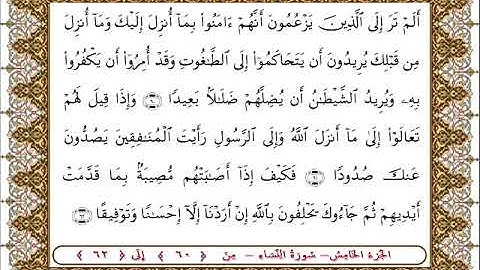 أَلَمْ تَرَ إِلَى ٱلَّذِينَ يَزْعُمُونَ أَنَّهُمْ ءَامَنُوا۟ بِمَآ أُنزِلَ إِلَيْكَ وَمَآ أُنزِلَ
مِن قَبْلِكَ يُرِيدُونَ أَن يَتَحَاكَمُوٓا۟ إِلَى ٱلطَّـٰغُوتِ وَقَدْ أُمِرُوٓا۟ أَن يَكْفُرُوا۟
بِهِۦ وَيُرِيدُ ٱلشَّيْطَـٰنُ أَن يُضِلَّهُمْ ضَلَـٰلًۢا بَعِيدًا ٦٠ وَإِذَا قِيلَ لَهُمْ
تَعَالَوْا۟ إِلَىٰ مَآ أَنزَلَ ٱللَّهُ وَإِلَى ٱلرَّسُولِ رَأَيْتَ ٱلْمُنَـٰفِقِينَ يَصُدُّونَ
عَنكَ صُدُودًا ٦١ فَكَيْفَ إِذَآ أَصَـٰبَتْهُم مُّصِيبَةٌۢ بِمَا قَدَّمَتْ
أَيْدِيهِمْ ثُمَّ جَآءُوكَ يَحْلِفُونَ بِٱللَّهِ إِنْ أَرَدْنَآ إِلَّآ إِحْسَـٰنًا وَتَوْفِيقًا ٦٢
الجزء الخامس - سورة النساء - من ﴿ ٦٠ ﴾ إلى ﴿ ٦٢ ﴾